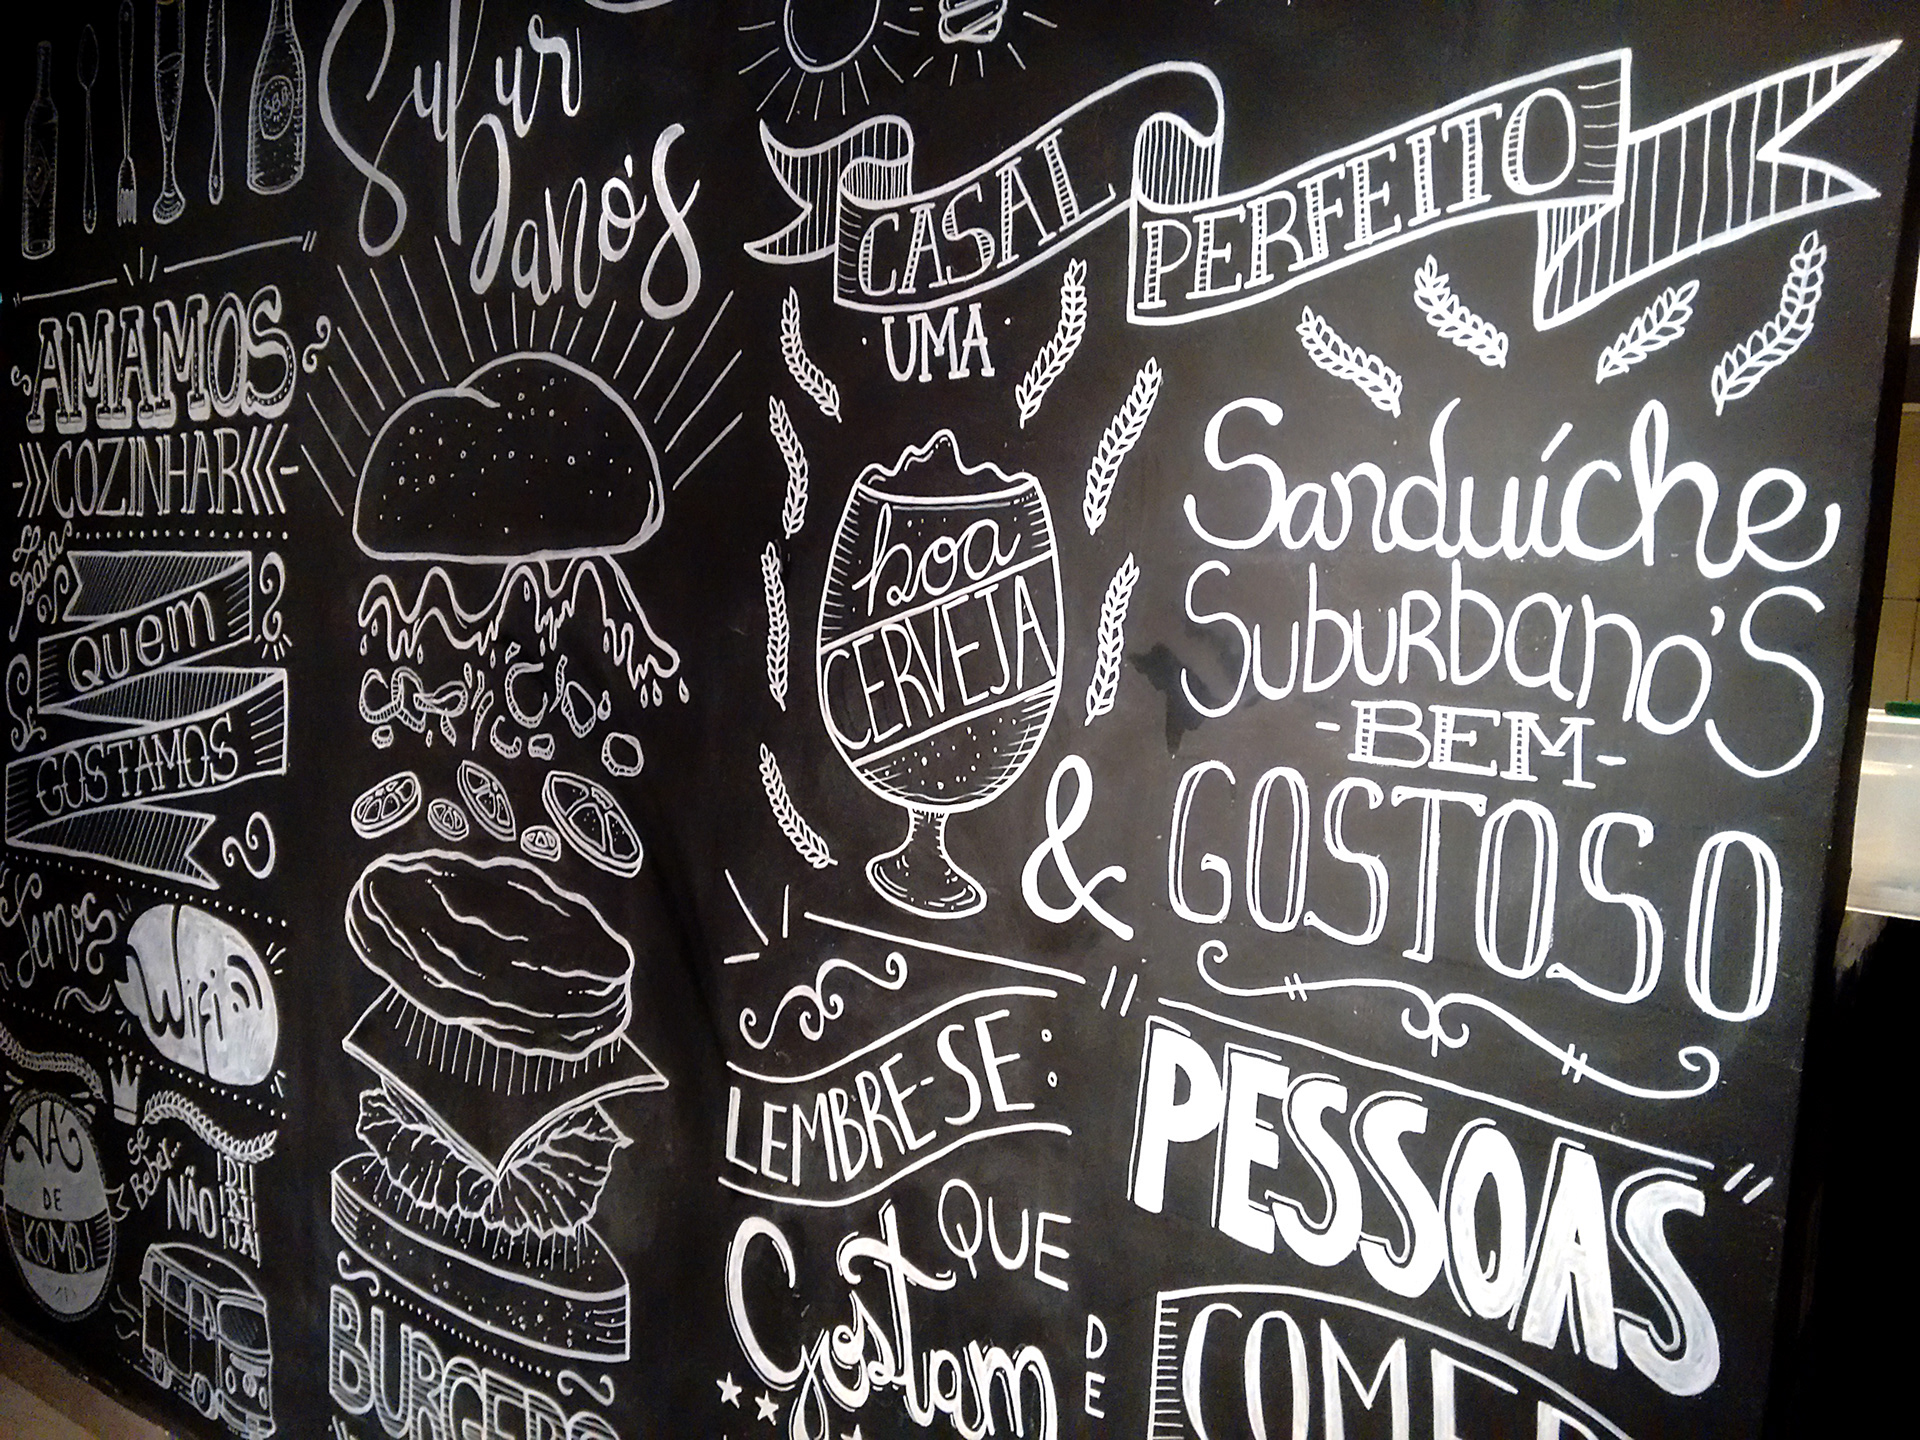 SBB
AMAMOS
COZINHAR
para
quem
GOSTAMOS
Temos
Wifi
VÁ
DE
KOMBI
Se
Beber..
NÃO
DI
RI
JA!
Subur
bano's
BURGERS
CASAL PERFEITO
UMA
boa
CERVEJA
&
Sanduíche
Suburbano's
-BEM-
GOSTOSO
LEMBRE-SE:
PESSOAS
QUE
Gostam
DE
COMER